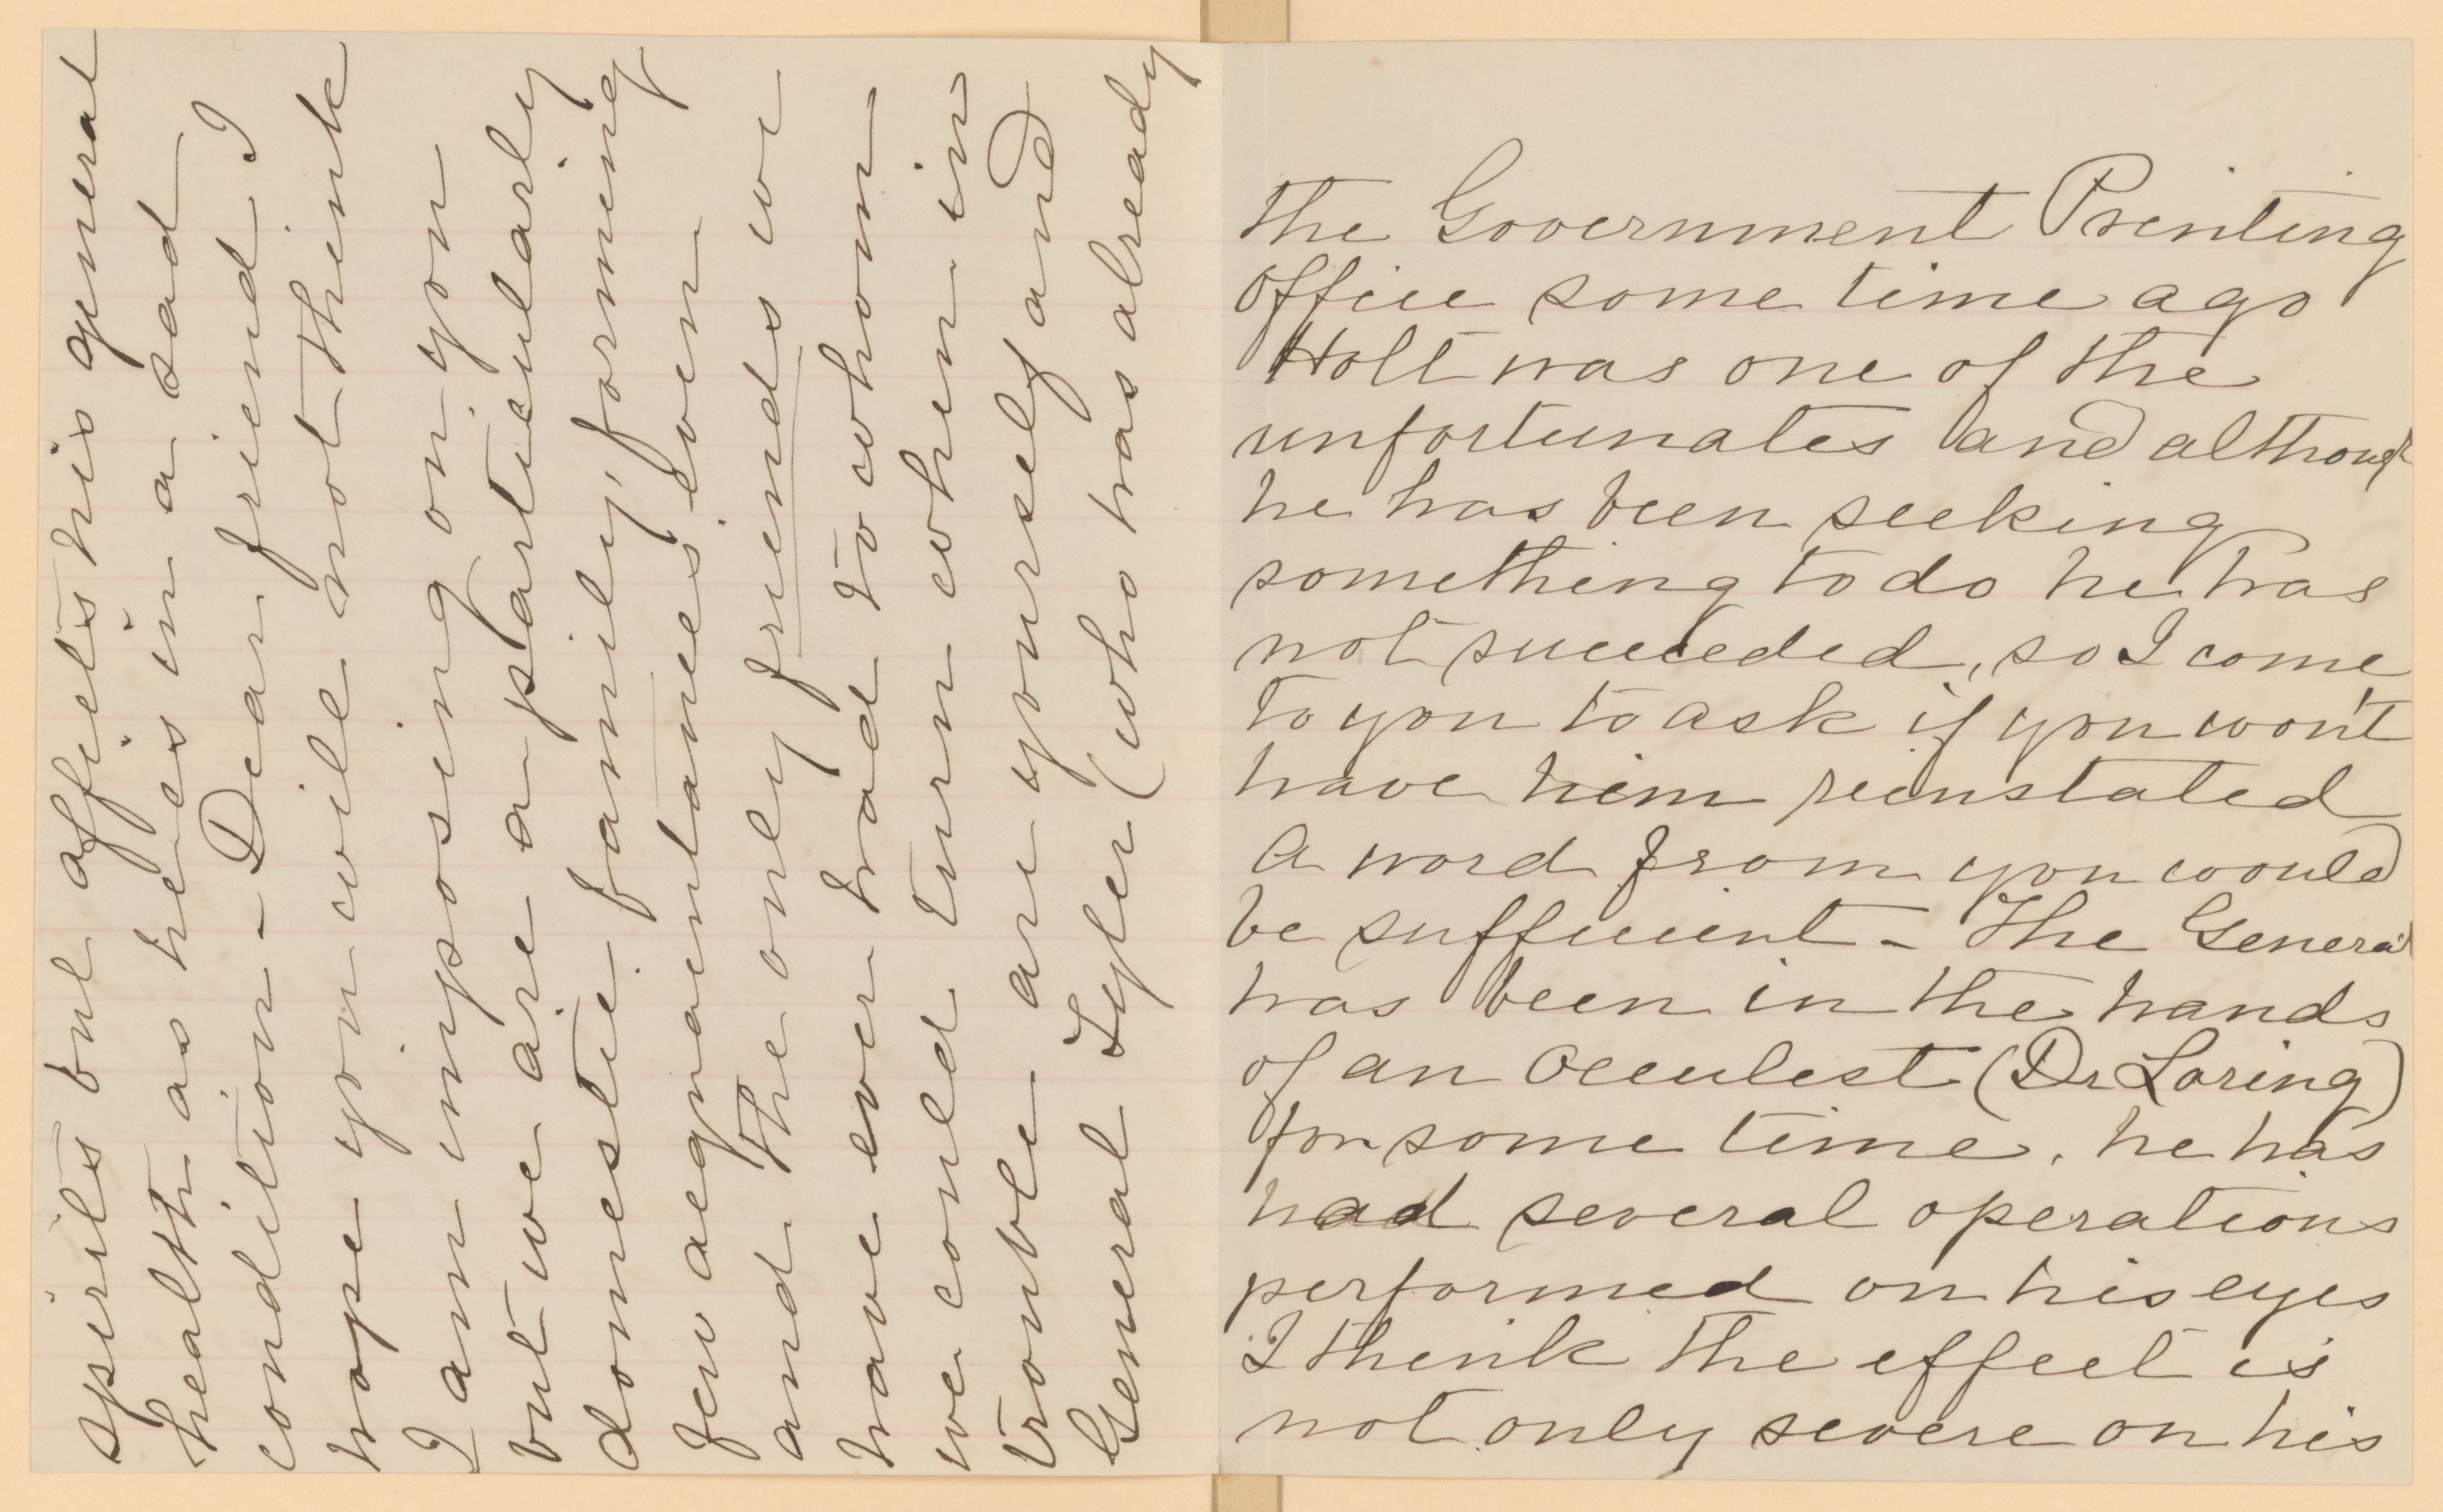 the Government Printing
office some time ago
Holt was one of the
unfortunates and although
he has been seeking
something to do he has
not succeeded, so I come
to you to ask if you wont
have him reinstated
A word from you would
be sufficient - The General
has been in the hands
of an Occulist (Dr Loring)
for some time, he has
had several operations
performed on his eyes
I think the effect is
not only severe on his
spirits but affects his general
health as he is in a sad
condition - Dear friend I
hope you will not think
I am imposing on you
but we are a particularly
domestic family, forming
few acquaintances even
and the only friends we
have ever had to whom
we could turn when in
trouble are yourself and
General Tyler (who has already